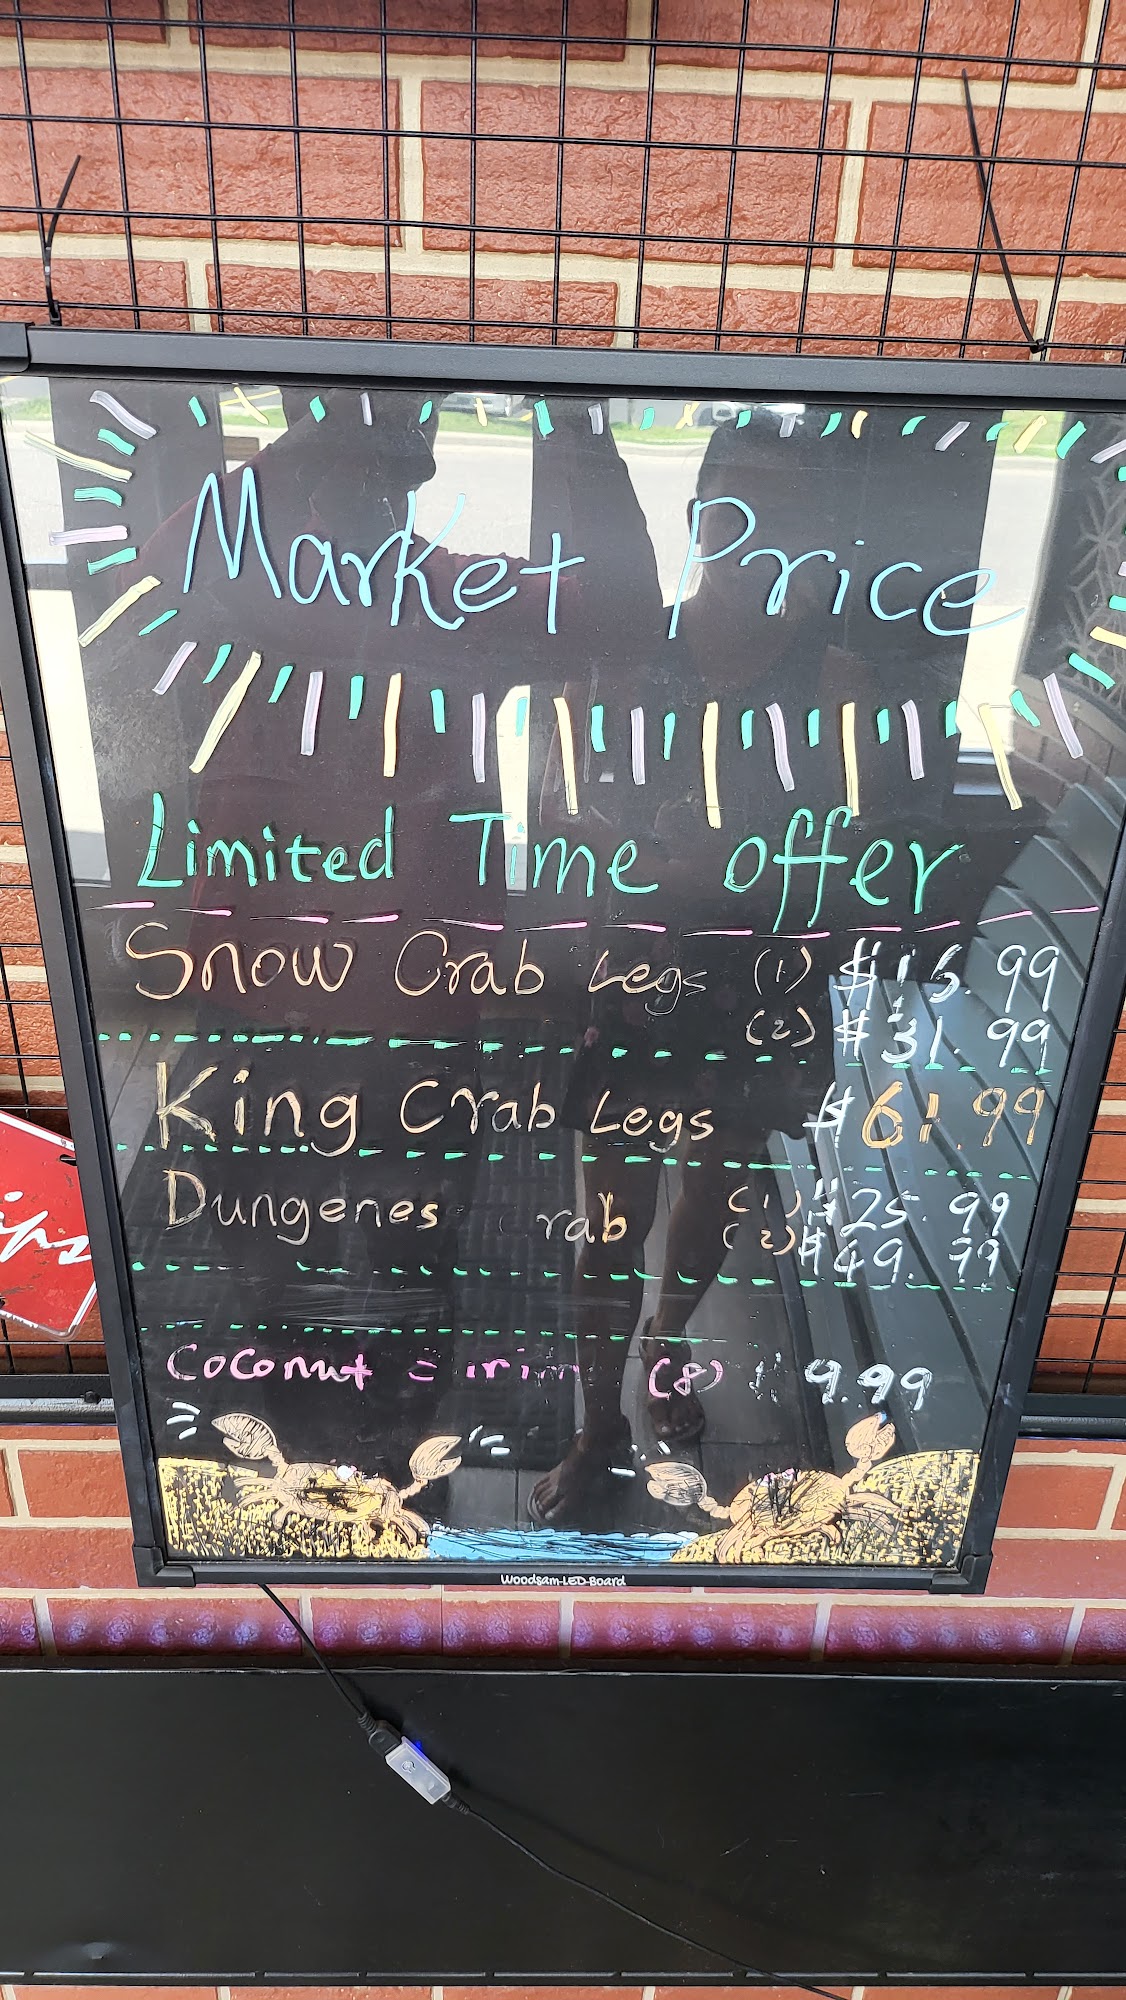 Market Price
Limited Time offer
Snow Crab Legs (1) $16.99
(2) $31.99
King Crab Legs $61.99
Dungenes rab (1) $25.99
(2) $49.99
Coconut (8) $9.99
Woodsam-LED-Board